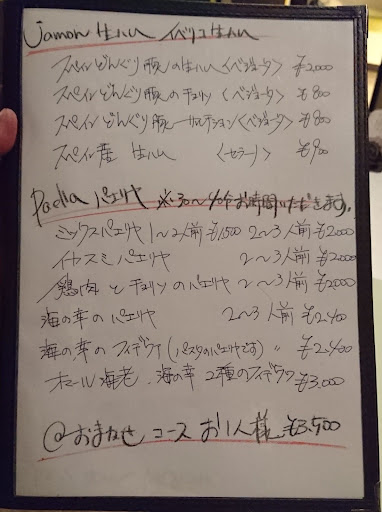 Jamon 生ハム イベリコ生ハム
スペインどんぐり豚の生ハム<ベジョータ> ¥2,000
スペインどんぐり豚のチョリソ<ベジョータ> ¥800
スペインどんぐり豚サルチチョン<ベジョータ> ¥800
スペイン産 生ハム <セラーノ> ¥900
Paella パエリヤ ※30〜40分お時間いただきます。
ミックスパエリヤ 1〜2人前 ¥1500 2〜3人前 ¥2000
イカスミパエリヤ 2〜3人前 ¥2000
鶏肉とチョリソのパエリヤ 2〜3人前 ¥2000
海の幸のパエリヤ 2〜3人前 ¥2,400
海の幸のフィデウア(パスタのパエリヤです) 〃 ¥2,400
オマール海老・海の幸 2種のフィデウア ¥3,000
@おまかせ コース お1人様 ¥3,500